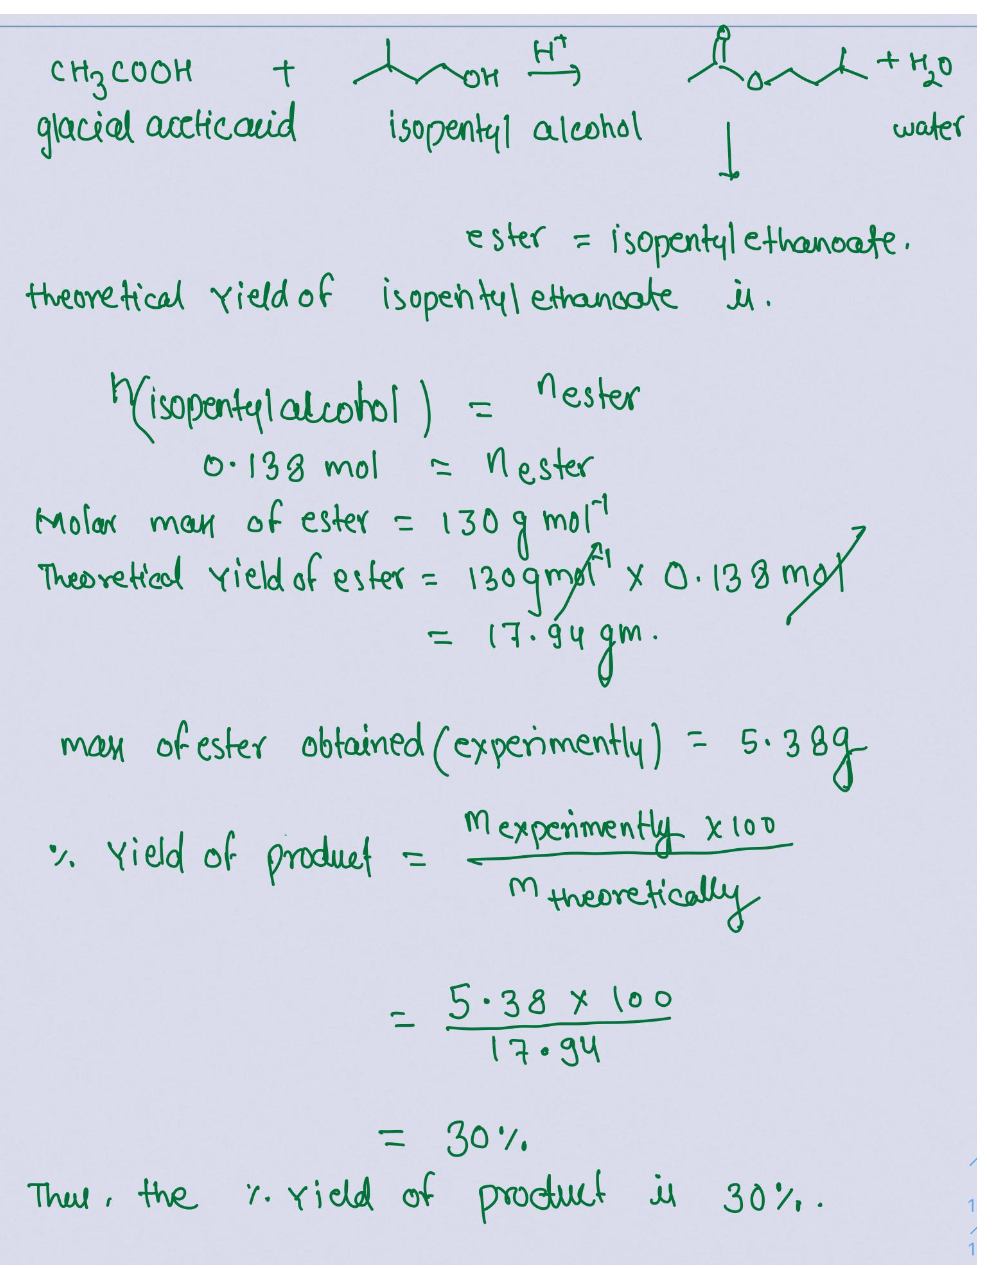 CH3COOH + OH H+ → O O + H2O
glacial acetic acid isopentyl alcohol water
ester = isopentyl ethanoate.
theoretical Yield of isopentyl ethanoate is.
n(isopentyl alcohol) = nester
0.138 mol = nester
Molar mass of ester = 130 g mol-1
Theoretical Yield of ester = 130 g mol-1 x 0.138 mol
= 17.94 gm.
mass of ester obtained (experimently) = 5.38g
% Yield of product = m experimently x 100
m theoretically
= 5.38 x 100
17.94
= 30%
Thus, the % Yield of product is 30%.
1
1